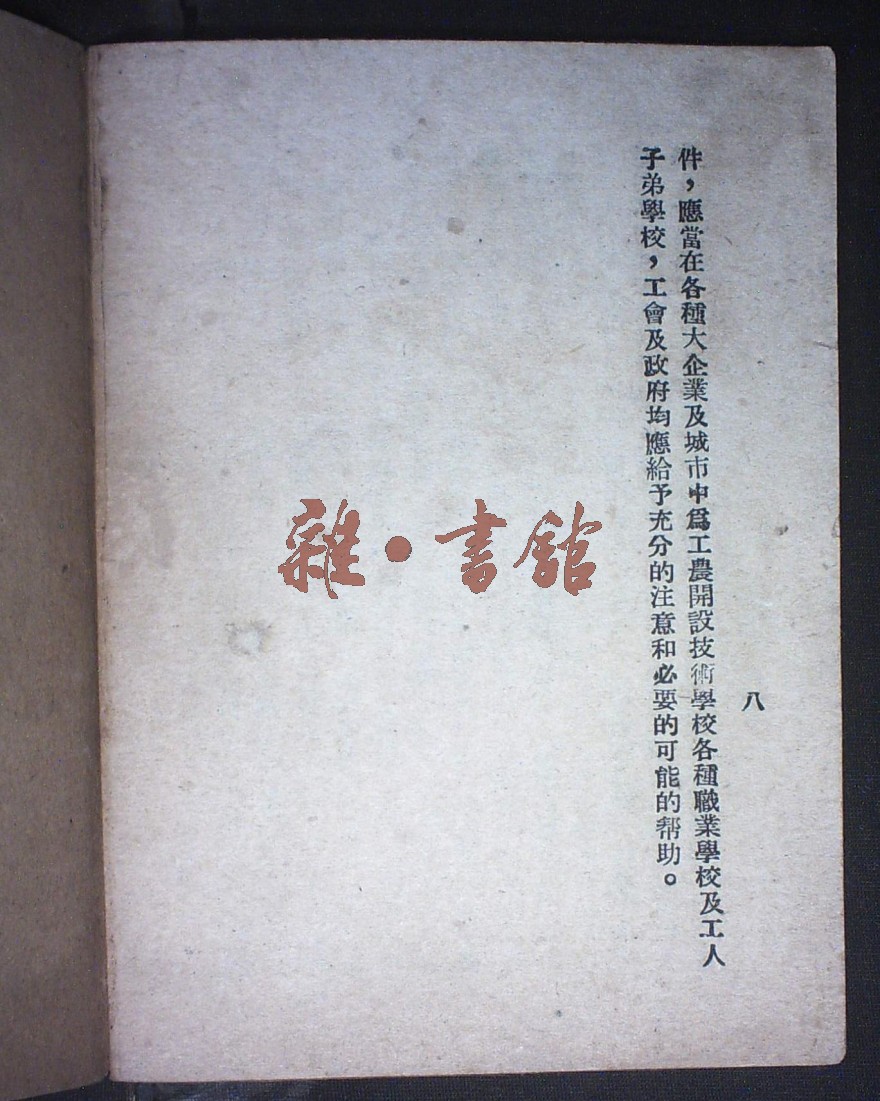 八
件，應當在各種大企業及城市中爲工農開設技術學校各種職業學校及工人
子弟學校，工會及政府均應給予充分的注意和必要的可能的幇助。
雜·書館